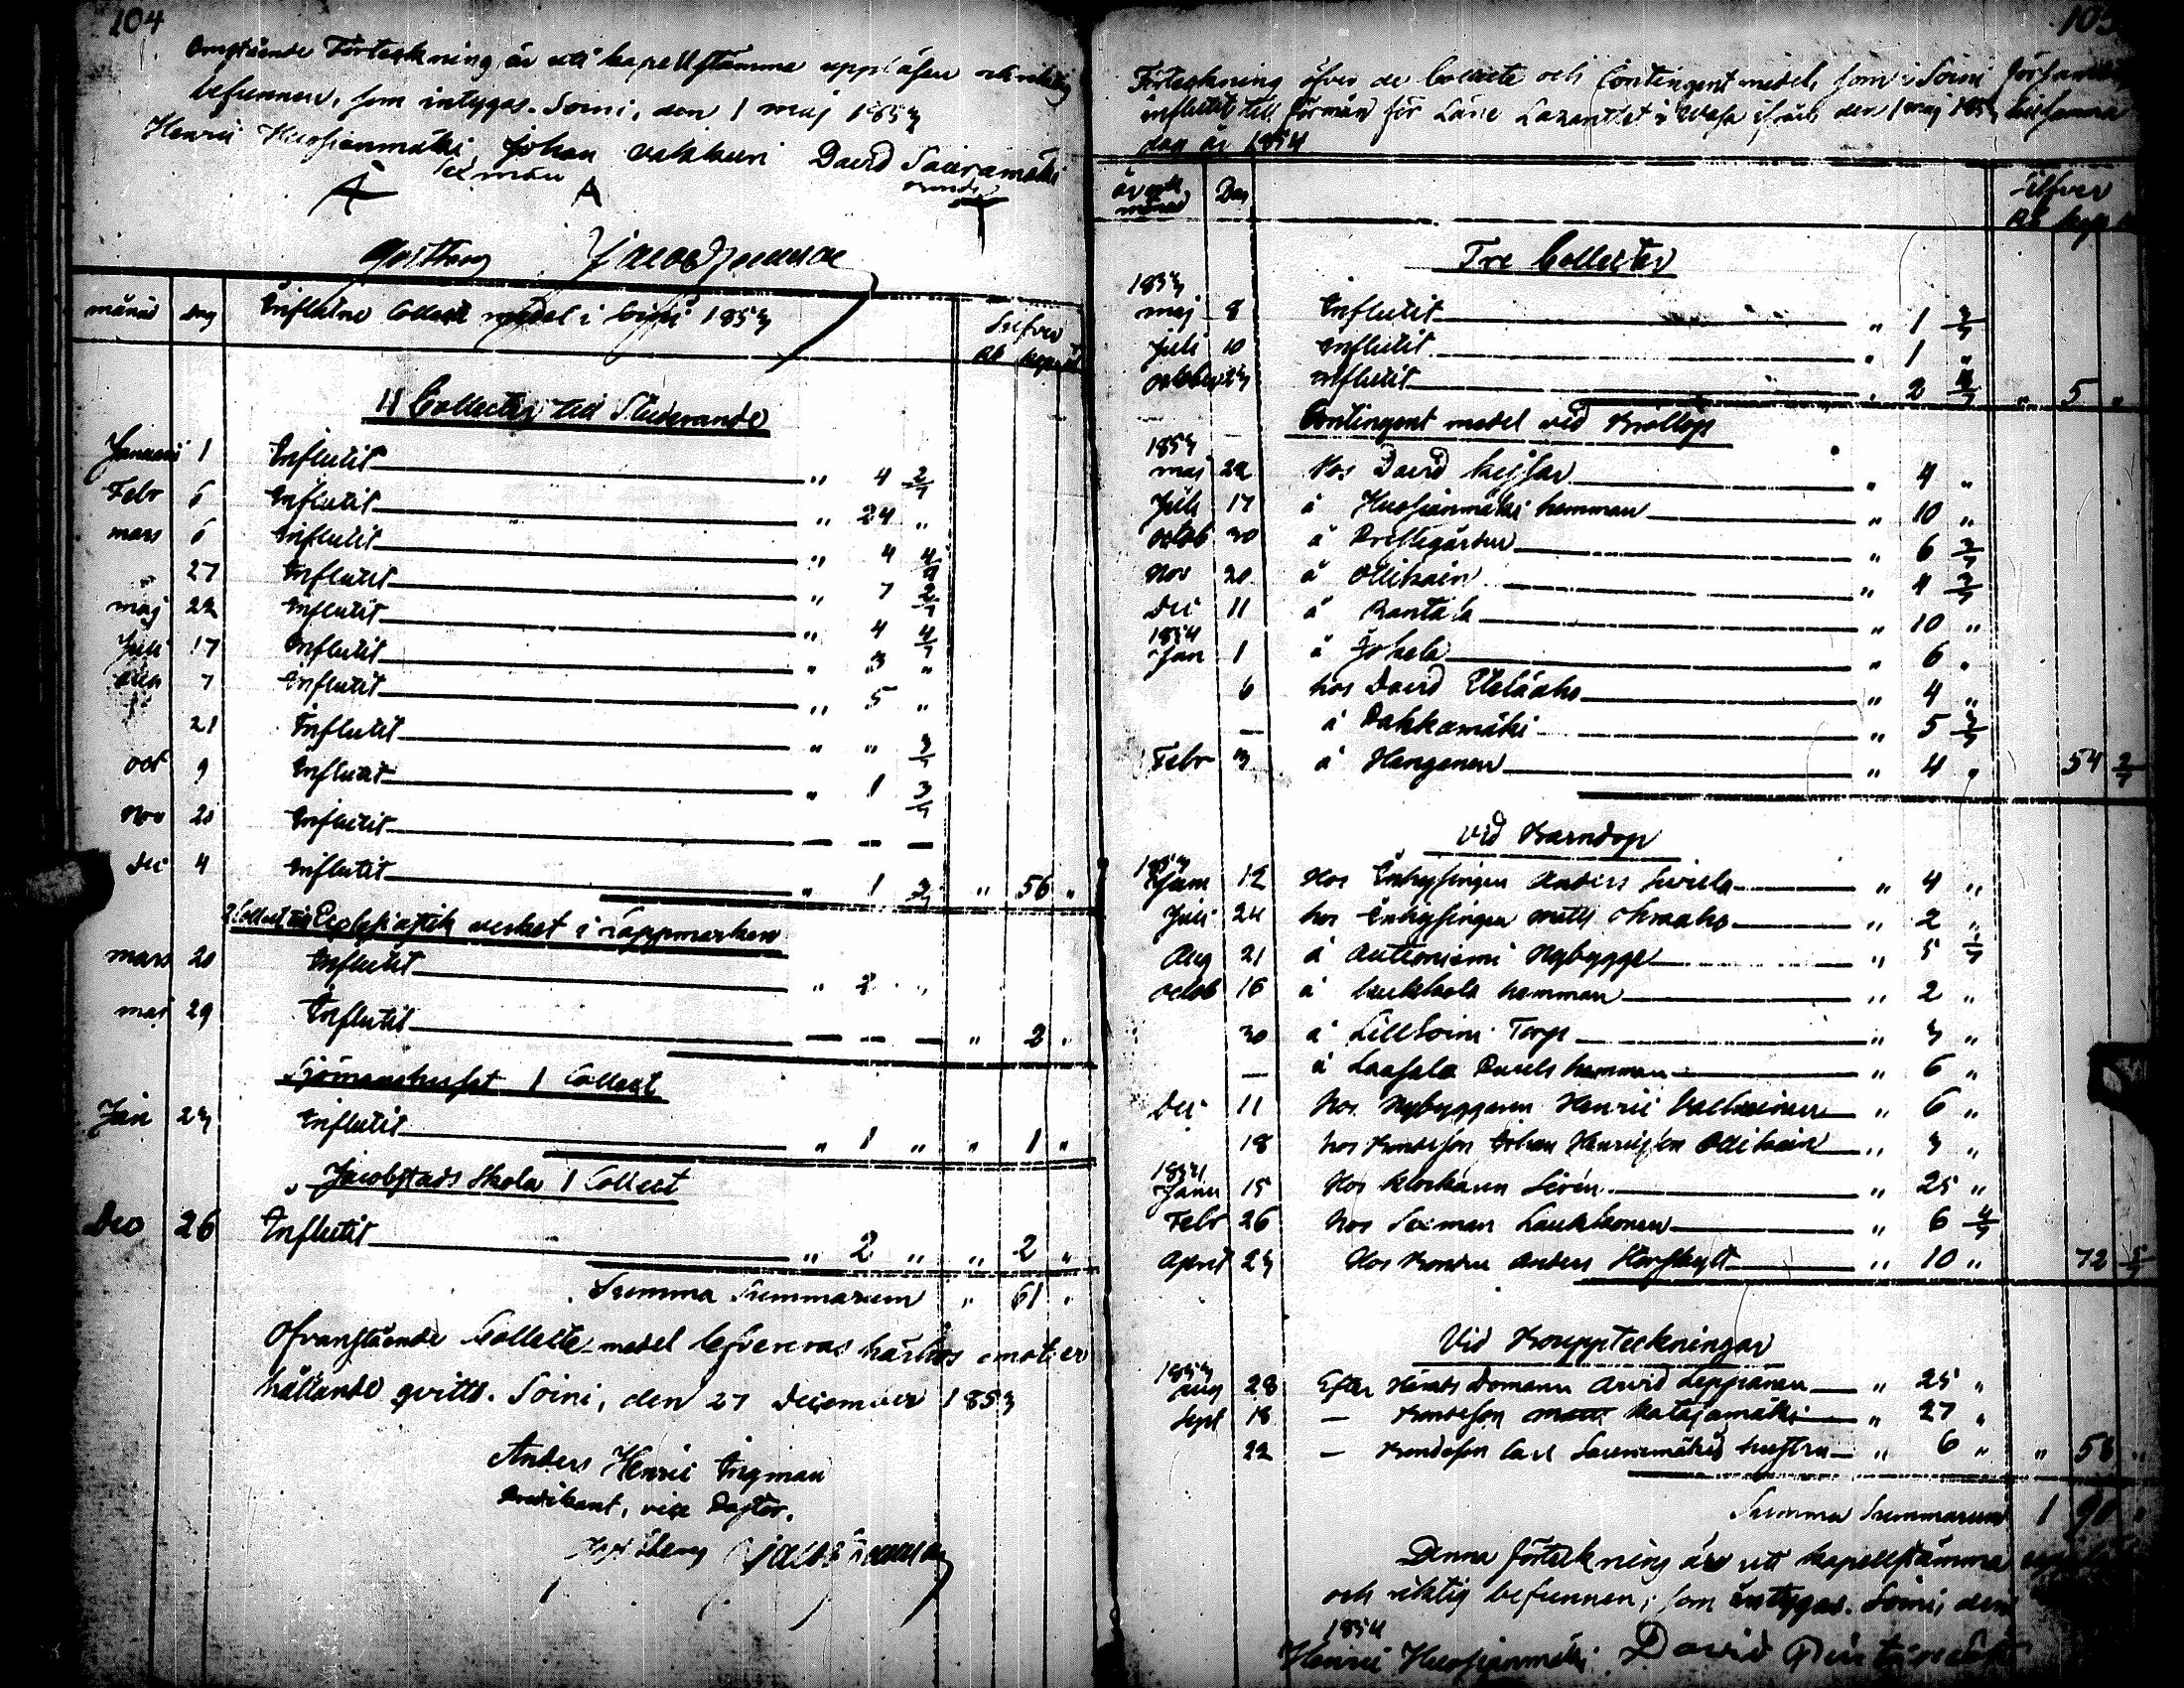 104
Omstående Förteckning är uti kapellstämma uppläsen och riktig
befunnen, som intygas. Soini, den 1 maj 1853
Henric Huosianmäki Johan Vakkuri David Sauramäki
Sexman bonde
månad dag Influtne Collect medel i Soini 1853 Silfver
Rb kopek
11 Collecter till Studerande
Januari 1 Influtit " 4 2/7
Febr 6 Influtit " 24 "
mars 6 Influtit " 4 4/7
" 27 Influtit " 7 2/7
maj 22 Influtit " 4 4/7
Juli 17 Influtit " 3 "
7 Influtit " 5 "
21 Influtit " " 3/7
oct 9 Influtit " 1 3/7
Nov 20 Influtit — — —
Dec 4 Influtit " 1 3/7 " 56 "
2 Collect till Ecclesiastik verket i Lappmarken
mars 20 Influtit " 2 "
maj 29 Influtit — — — " 2 "
Sjömanshuset 1 Collect
Jan 23 Influtit " 1 " " 1 "
Jacobstads Skola 1 Collect
Dec 26 Influtit " 2 " " 2 "
Summa Summarum " 61 "
Ofvanstående Collecte medel lefvereras härhos emot er
hållande qvitto. Soini, den 27 December 1853
Anders Henric Ingman
Predikant, vice Pastor.
105
Förteckning öfver de Collecte och Contingent medel, som i Soini församling
influtit till förmån för Läne Lazarettet i Wasa ifrån den 1 maj 1853 till samma
dag år 1854
år och månad Dag Silfver
Rb kop
Tre Collecter
1853
maj 8 Influtit " 1 3/7
Juli 10 Influtit " 1 "
October 23 Influtit " 2 4/7 " 5 "
Contingent medel vid Bröllop
1853
maj 22 Hos David Keisar " 4 "
Juli 17 å Huosianmäki hemman " 10 "
octob 30 å Prestegården " 6 3/7
Nov 20 å Ollikain " 4 2/7
Dec 11 å Rantala " 10 "
1854
Jan 1 å Jokela " 6 "
6 hos David Eteläaho " 4 "
— å Pakkamäki " 5 3/7
Febr 3 å Hanganen " 4 " 54 2/7
Vid Barndop
1853
Juni 12 Hos Inhysingen Anders " 4 "
Juli 24 hos Inhysingen Matts " 2 "
Aug 21 å Autioniemi Nybygge " 5 1/7
octob 16 å Laukkola hemman " 2 "
30 å Lill Soini Torp " 3 "
— å Laasala Pauls hemman " 6 "
Dec 11 hos Nybyggaren Henric " 6 "
18 hos Bondeson Johan Henricsson Ollikain " 3 "
1854
Janu 15 Hos klockaren Sirén " 25 "
Febr 26 hos Sexman Laukkonen " 6 4/7
April 23 Hos Bonden Anders Storskylt " 10 " 72 5/7
Vid Bouppteckningar
1853
Aug 28 Efter Härads Domaren Arvid Leppänen " 25 "
Sept 18 — Bondeson Matts Katajamäki " 27 "
22 — Bondeson Carl Sauramäkis hustru " 6 " " 58 "
Summa Summarum 1 90 "
Denna förteckning är uti kapellstämma
och riktig befunnen, som intygas. Soini, den
1854
Henric Huosianmäki David